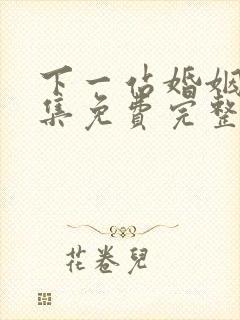 下一站婚姻
集免费完整
花卷儿